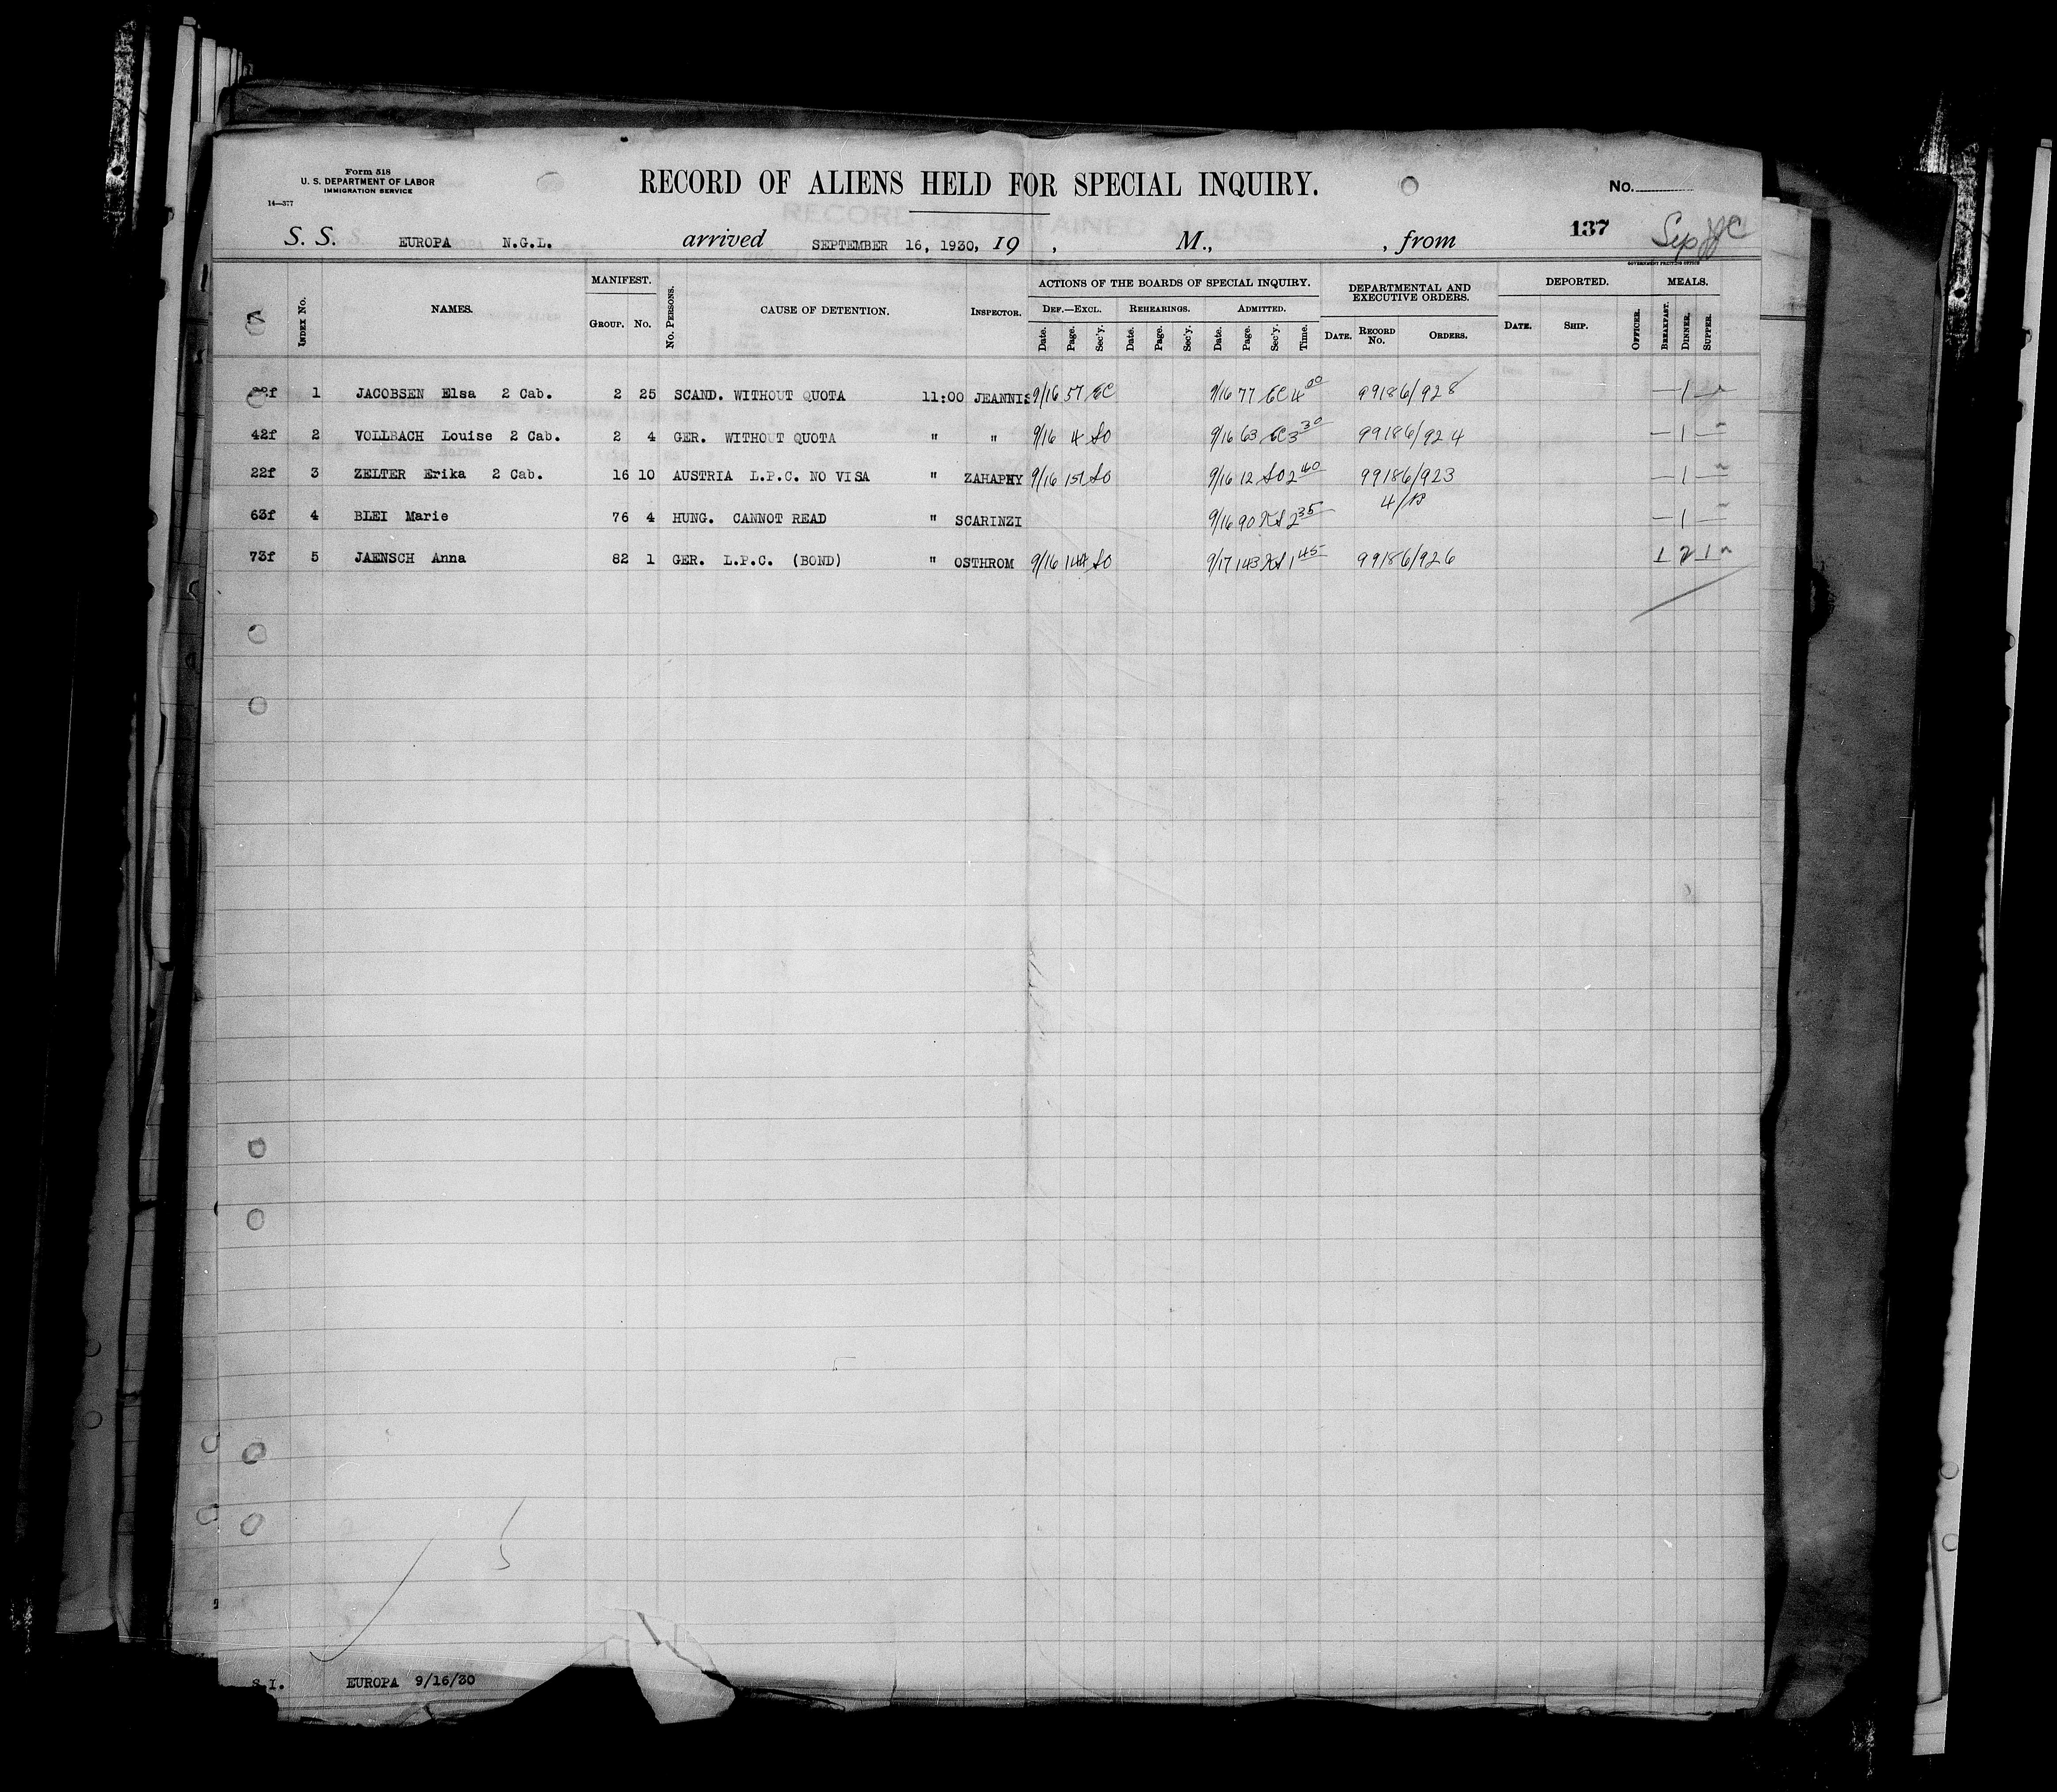 Form 518
U. S. DEPARTMENT OF LABOR
IMMIGRATION SERVICE
14—377
RECORD OF ALIENS HELD FOR SPECIAL INQUIRY.
No.
137
S. S. EUROPA N.G.L. arrived SEPTEMBER 16, 1930, 19 , M., , from
GOVERNMENT PRINTING OFFICE
INDEX NO. NAMES. MANIFEST. GROUP. NO. NO. PERSONS. CAUSE OF DETENTION. INSPECTOR. ACTIONS OF THE BOARDS OF SPECIAL INQUIRY. DEPARTMENTAL AND EXECUTIVE ORDERS. DEPORTED. MEALS.
DEF.—EXCL. REHEARINGS. ADMITTED.
Date. Page. Sec'y. Date. Page. Sec'y. Date. Page. Sec'y. Time. DATE. RECORD No. ORDERS. DATE. SHIP. OFFICER. BREAKFAST. DINNER. SUPPER.
1 JACOBSEN Elsa 2 Cab. 2 25 SCAND. WITHOUT QUOTA 11:00 JEANNIS 9/16 57 EC 9/16 77 EC 4 00 99186/928 — 1 —
42f 2 VOLLBACH Louise 2 Cab. 2 4 GER. WITHOUT QUOTA " " 9/16 4 SO 9/16 63 EC 3 30 99186/924 — 1 —
22f 3 ZELTER Erika 2 Cab. 16 10 AUSTRIA L.P.C. NO VISA " ZAHAPHY 9/16 151 SO 9/16 12 SO 2 40 99186/923 — 1 —
63f 4 BLEI Marie 76 4 HUNG. CANNOT READ " SCARINZI 9/16 90 KS 2 35 — 1 —
73f 5 JAENSCH Anna 82 1 GER. L.P.C. (BOND) " OSTHROM 9/16 144 SO 9/17 143 KS 1 45 99186/926 1 2 1
5
S.I. EUROPA 9/16/30